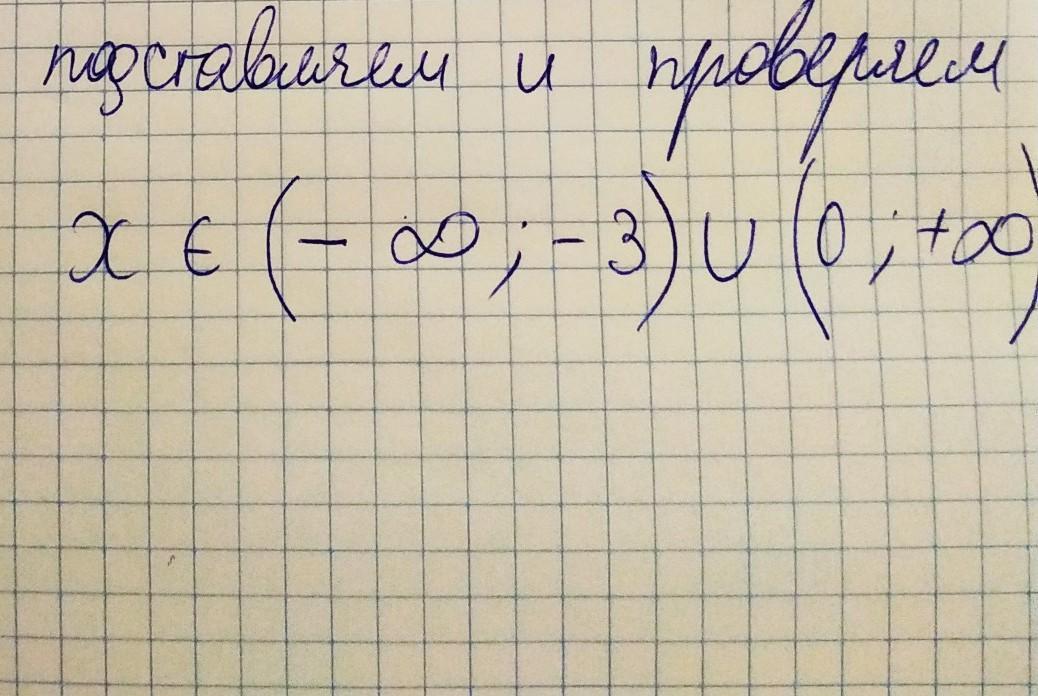 подставляем и проверяем
x ∈ (- ∞ ; - 3) ∪ (0 ; +∞)